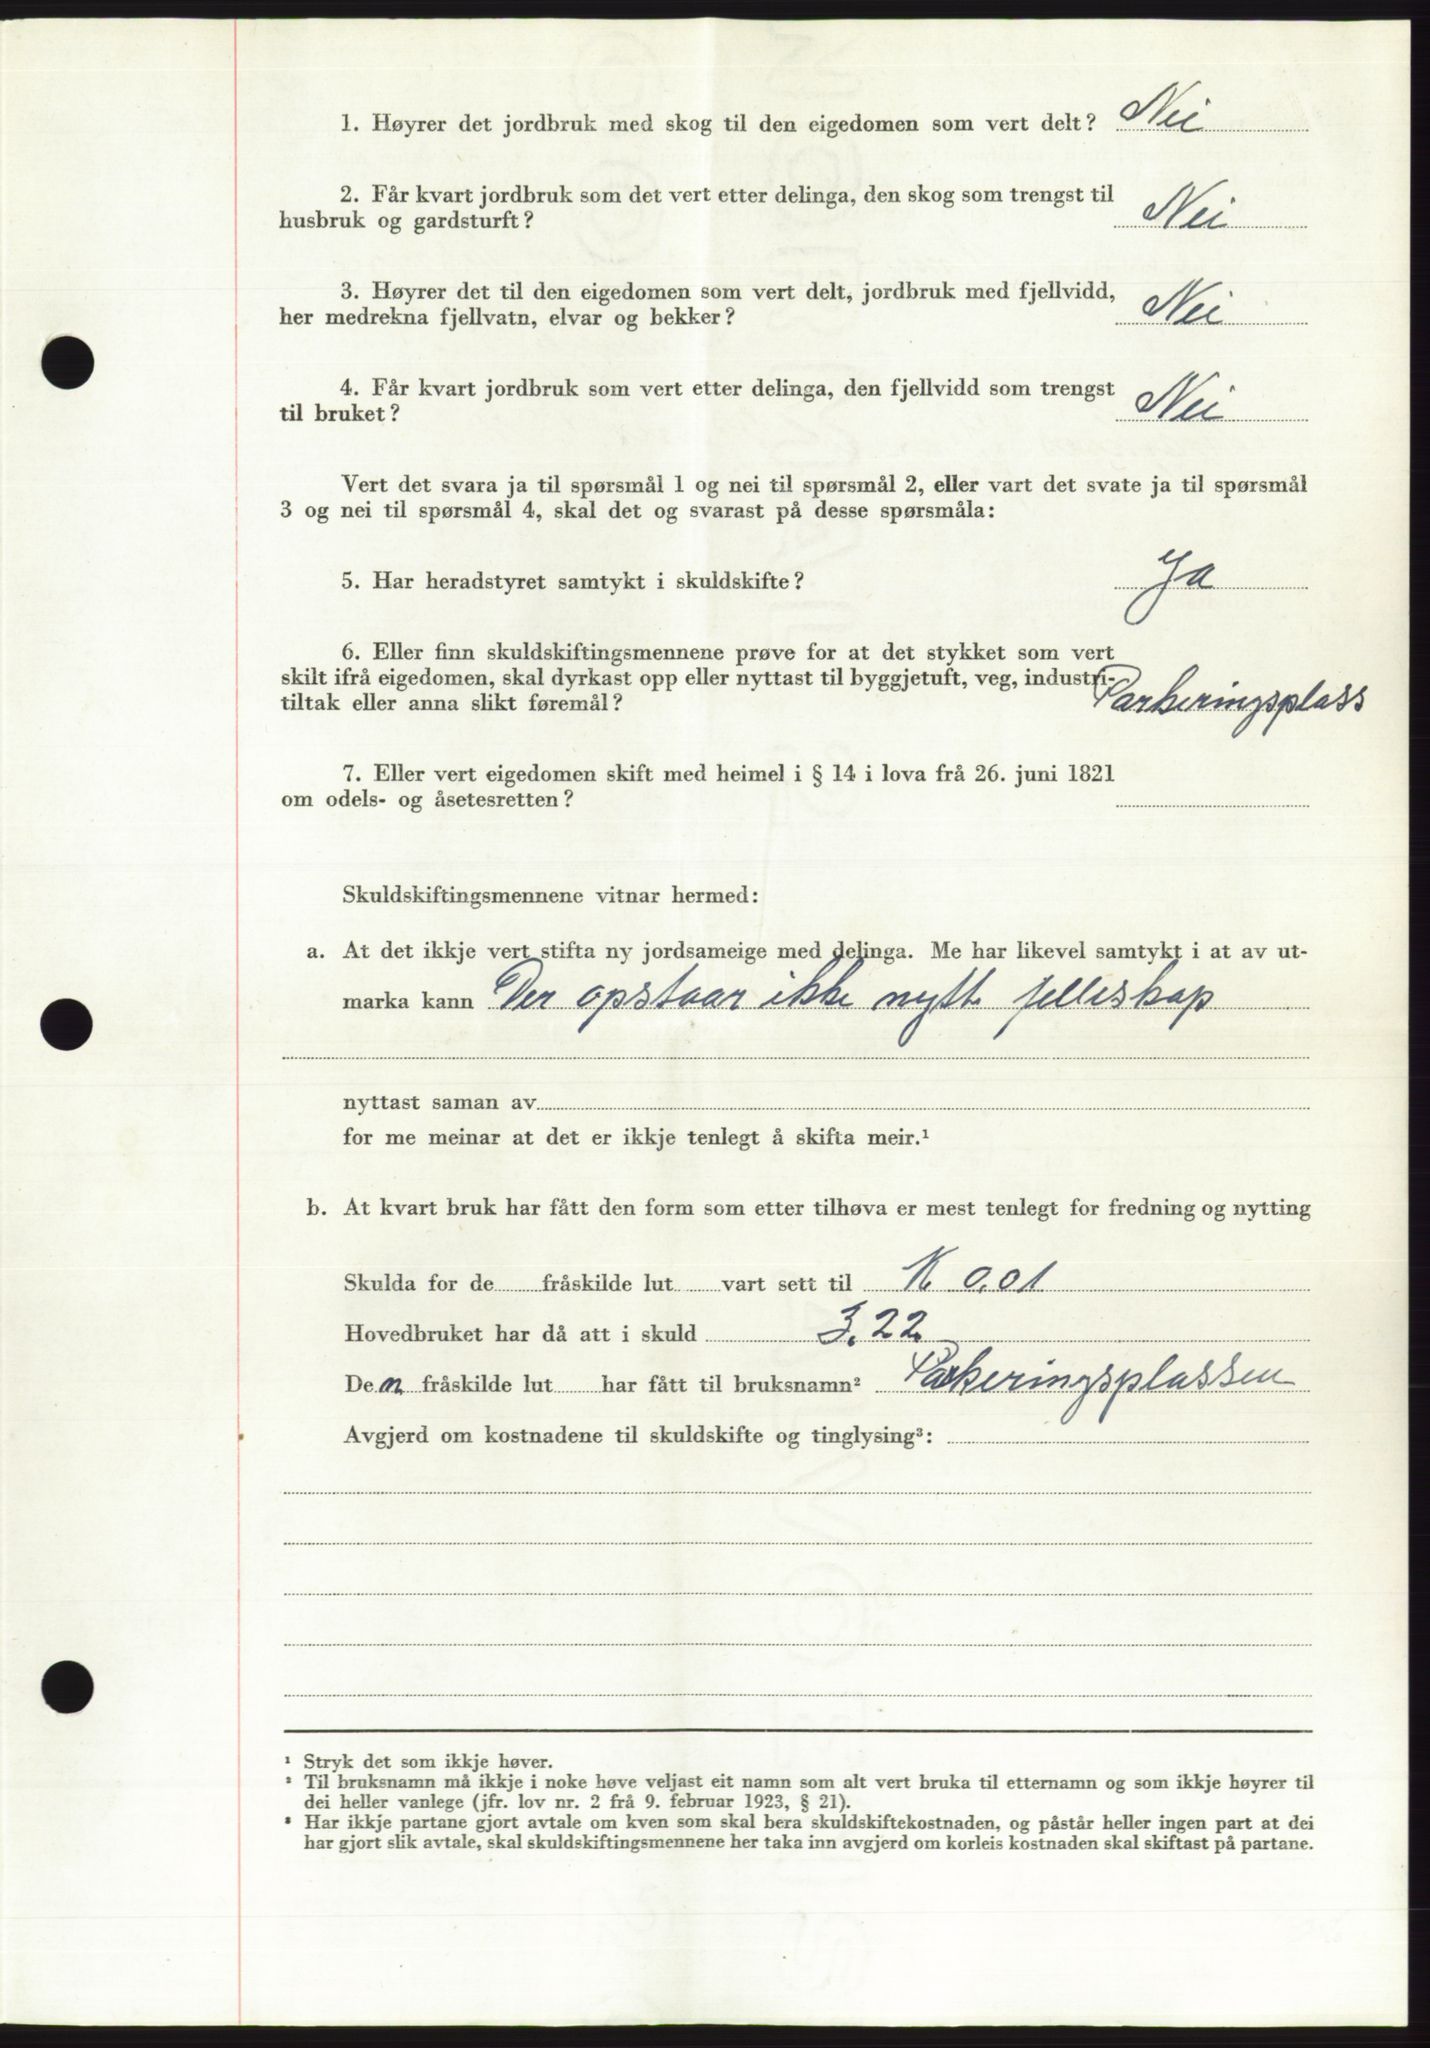 1. Høyrer det jordbruk med skog til den eigedomen som vert delt? Nei
2. Får kvart jordbruk som det vert etter delinga, den skog som trengst til
husbruk og gardsturft? Nei
3. Høyrer det til den eigedomen som vert delt, jordbruk med fjellvidd,
her medrekna fjellvatn, elvar og bekker? Nei
4. Får kvart jordbruk som vert etter delinga, den fjellvidd som trengst
til bruket? Nei
Vert det svara ja til spørsmål 1 og nei til spørsmål 2, eller vart det svate ja til spørsmål
3 og nei til spørsmål 4, skal det og svarast på desse spørsmåla:
5. Har heradstyret samtykt i skuldskifte? Ja
6. Eller finn skuldskiftingsmennene prøve for at det stykket som vert
skilt ifrå eigedomen, skal dyrkast opp eller nyttast til byggjetuft, veg, industri-
tiltak eller anna slikt føremål? Parkeringsplass
7. Eller vert eigedomen skift med heimel i § 14 i lova frå 26. juni 1821
om odels- og åsetesretten?
Skuldskiftingsmennene vitnar hermed:
a. At det ikkje vert stifta ny jordsameige med delinga. Me har likevel samtykt i at av ut-
marka kann Der opstaar ikke nytt felleskap
nyttast saman av
for me meinar at det er ikkje tenlegt å skifta meir.¹
b. At kvart bruk har fått den form som etter tilhøva er mest tenlegt for fredning og nytting
Skulda for de fråskilde lut vart sett til K 0,01
Hovedbruket har då att i skuld 3.22
Den fråskilde lut har fått til bruksnamn² Parkeringsplassen
Avgjerd om kostnadene til skuldskifte og tinglysing³:
¹ Stryk det som ikkje høver.
² Til bruksnamn må ikkje i noke høve veljast eit namn som alt vert bruka til etternamn og som ikkje høyrer til
dei heller vanlege (jfr. lov nr. 2 frå 9. februar 1923, § 21).
³ Har ikkje partane gjort avtale om kven som skal bera skuldskiftekostnaden, og påstår heller ingen part at dei
har gjort slik avtale, skal skuldskiftingsmennene her taka inn avgjerd om korleis kostnaden skal skiftast på partane.